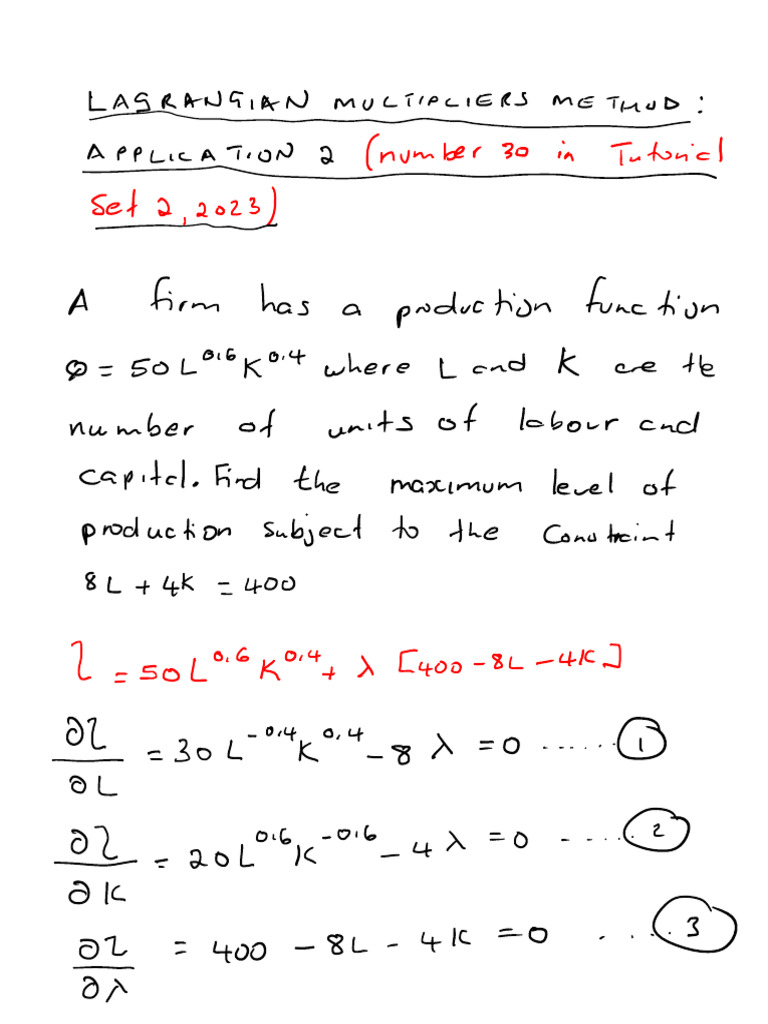 LAGRANGIAN MULTIPLIERS METHOD:
APPLICATION 2 (number 30 in Tutorial
Set 2, 2023)
A firm has a production function
Q = 50L^0.6 K^0.4 where L and K are the
number of units of labour and
capital. Find the maximum level of
production subject to the constraint
8L + 4K = 400
L = 50L^0.6 K^0.4 + λ [400 - 8L - 4K]
∂L/∂L = 30L^-0.4 K^0.4 - 8λ = 0 ...... 1
∂L/∂K = 20L^0.6 K^-0.6 - 4λ = 0 ...... 2
∂L/∂λ = 400 - 8L - 4K = 0 ..... 3